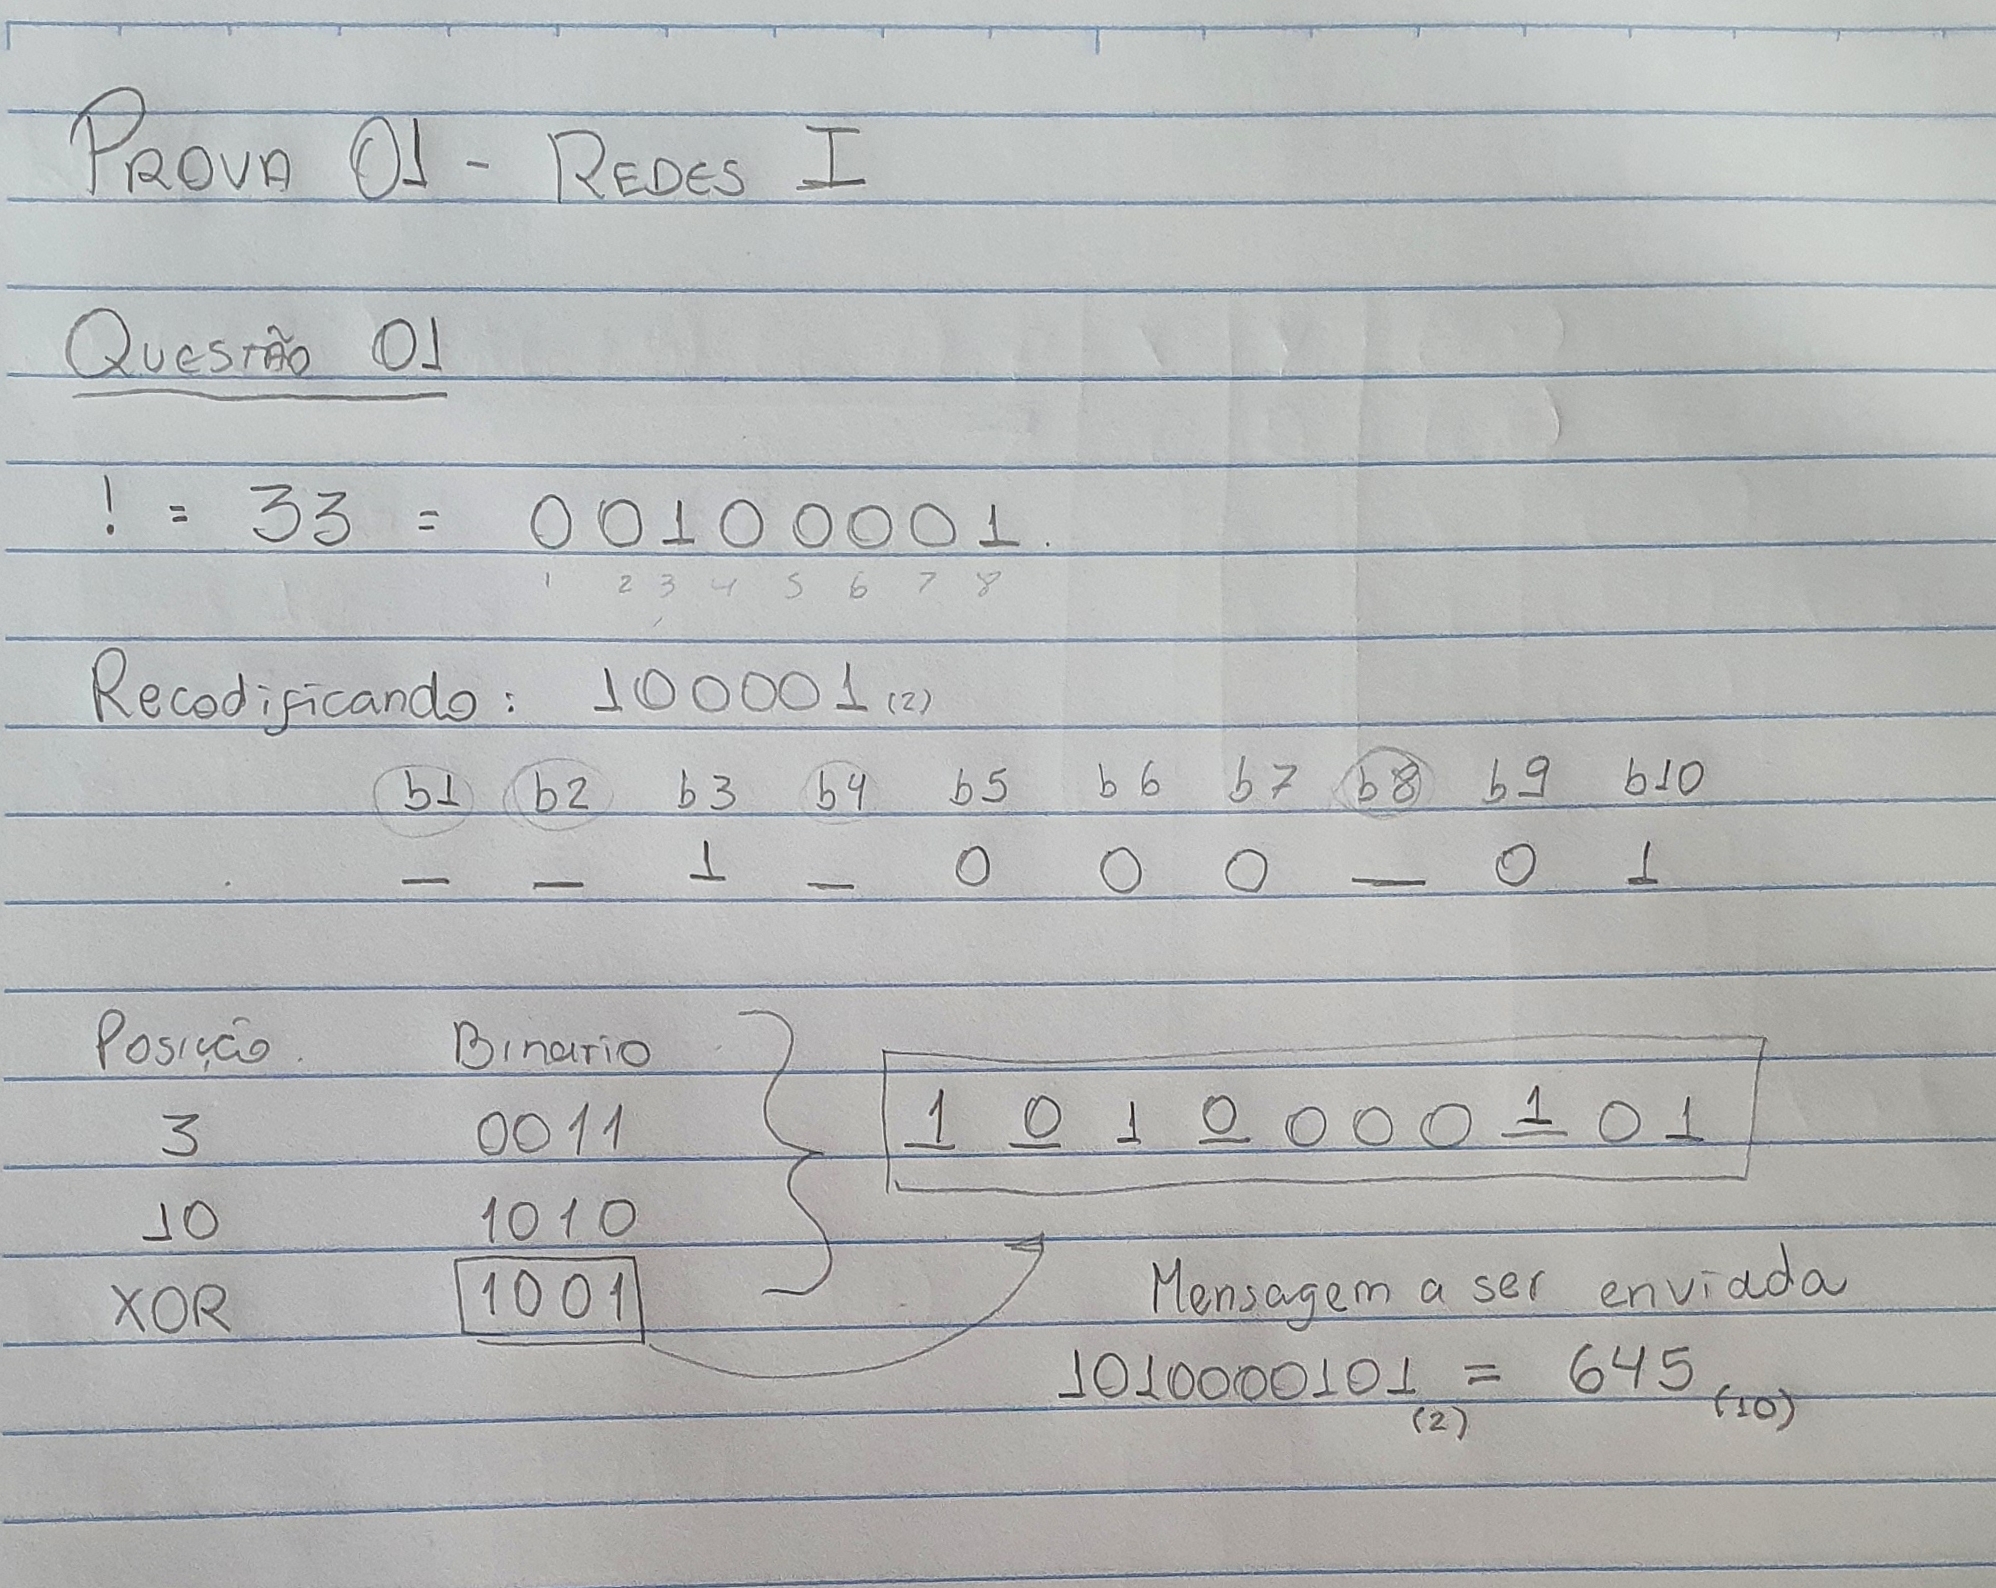 PROVA 01 - REDES I
QUESTÃO 01
! = 33 = 00100001.
1 2 3 4 5 6 7 8
Recodificando: 100001 (2)
b1 b2 b3 b4 b5 b6 b7 b8 b9 b10
_ _ 1 _ 0 0 0 _ 0 1
Posição. Binario
3 0011
10 1010
XOR 1001
1 0 1 0 0 0 0 1 0 1
Mensagem a ser enviada
1010000101 (2) = 645 (10)